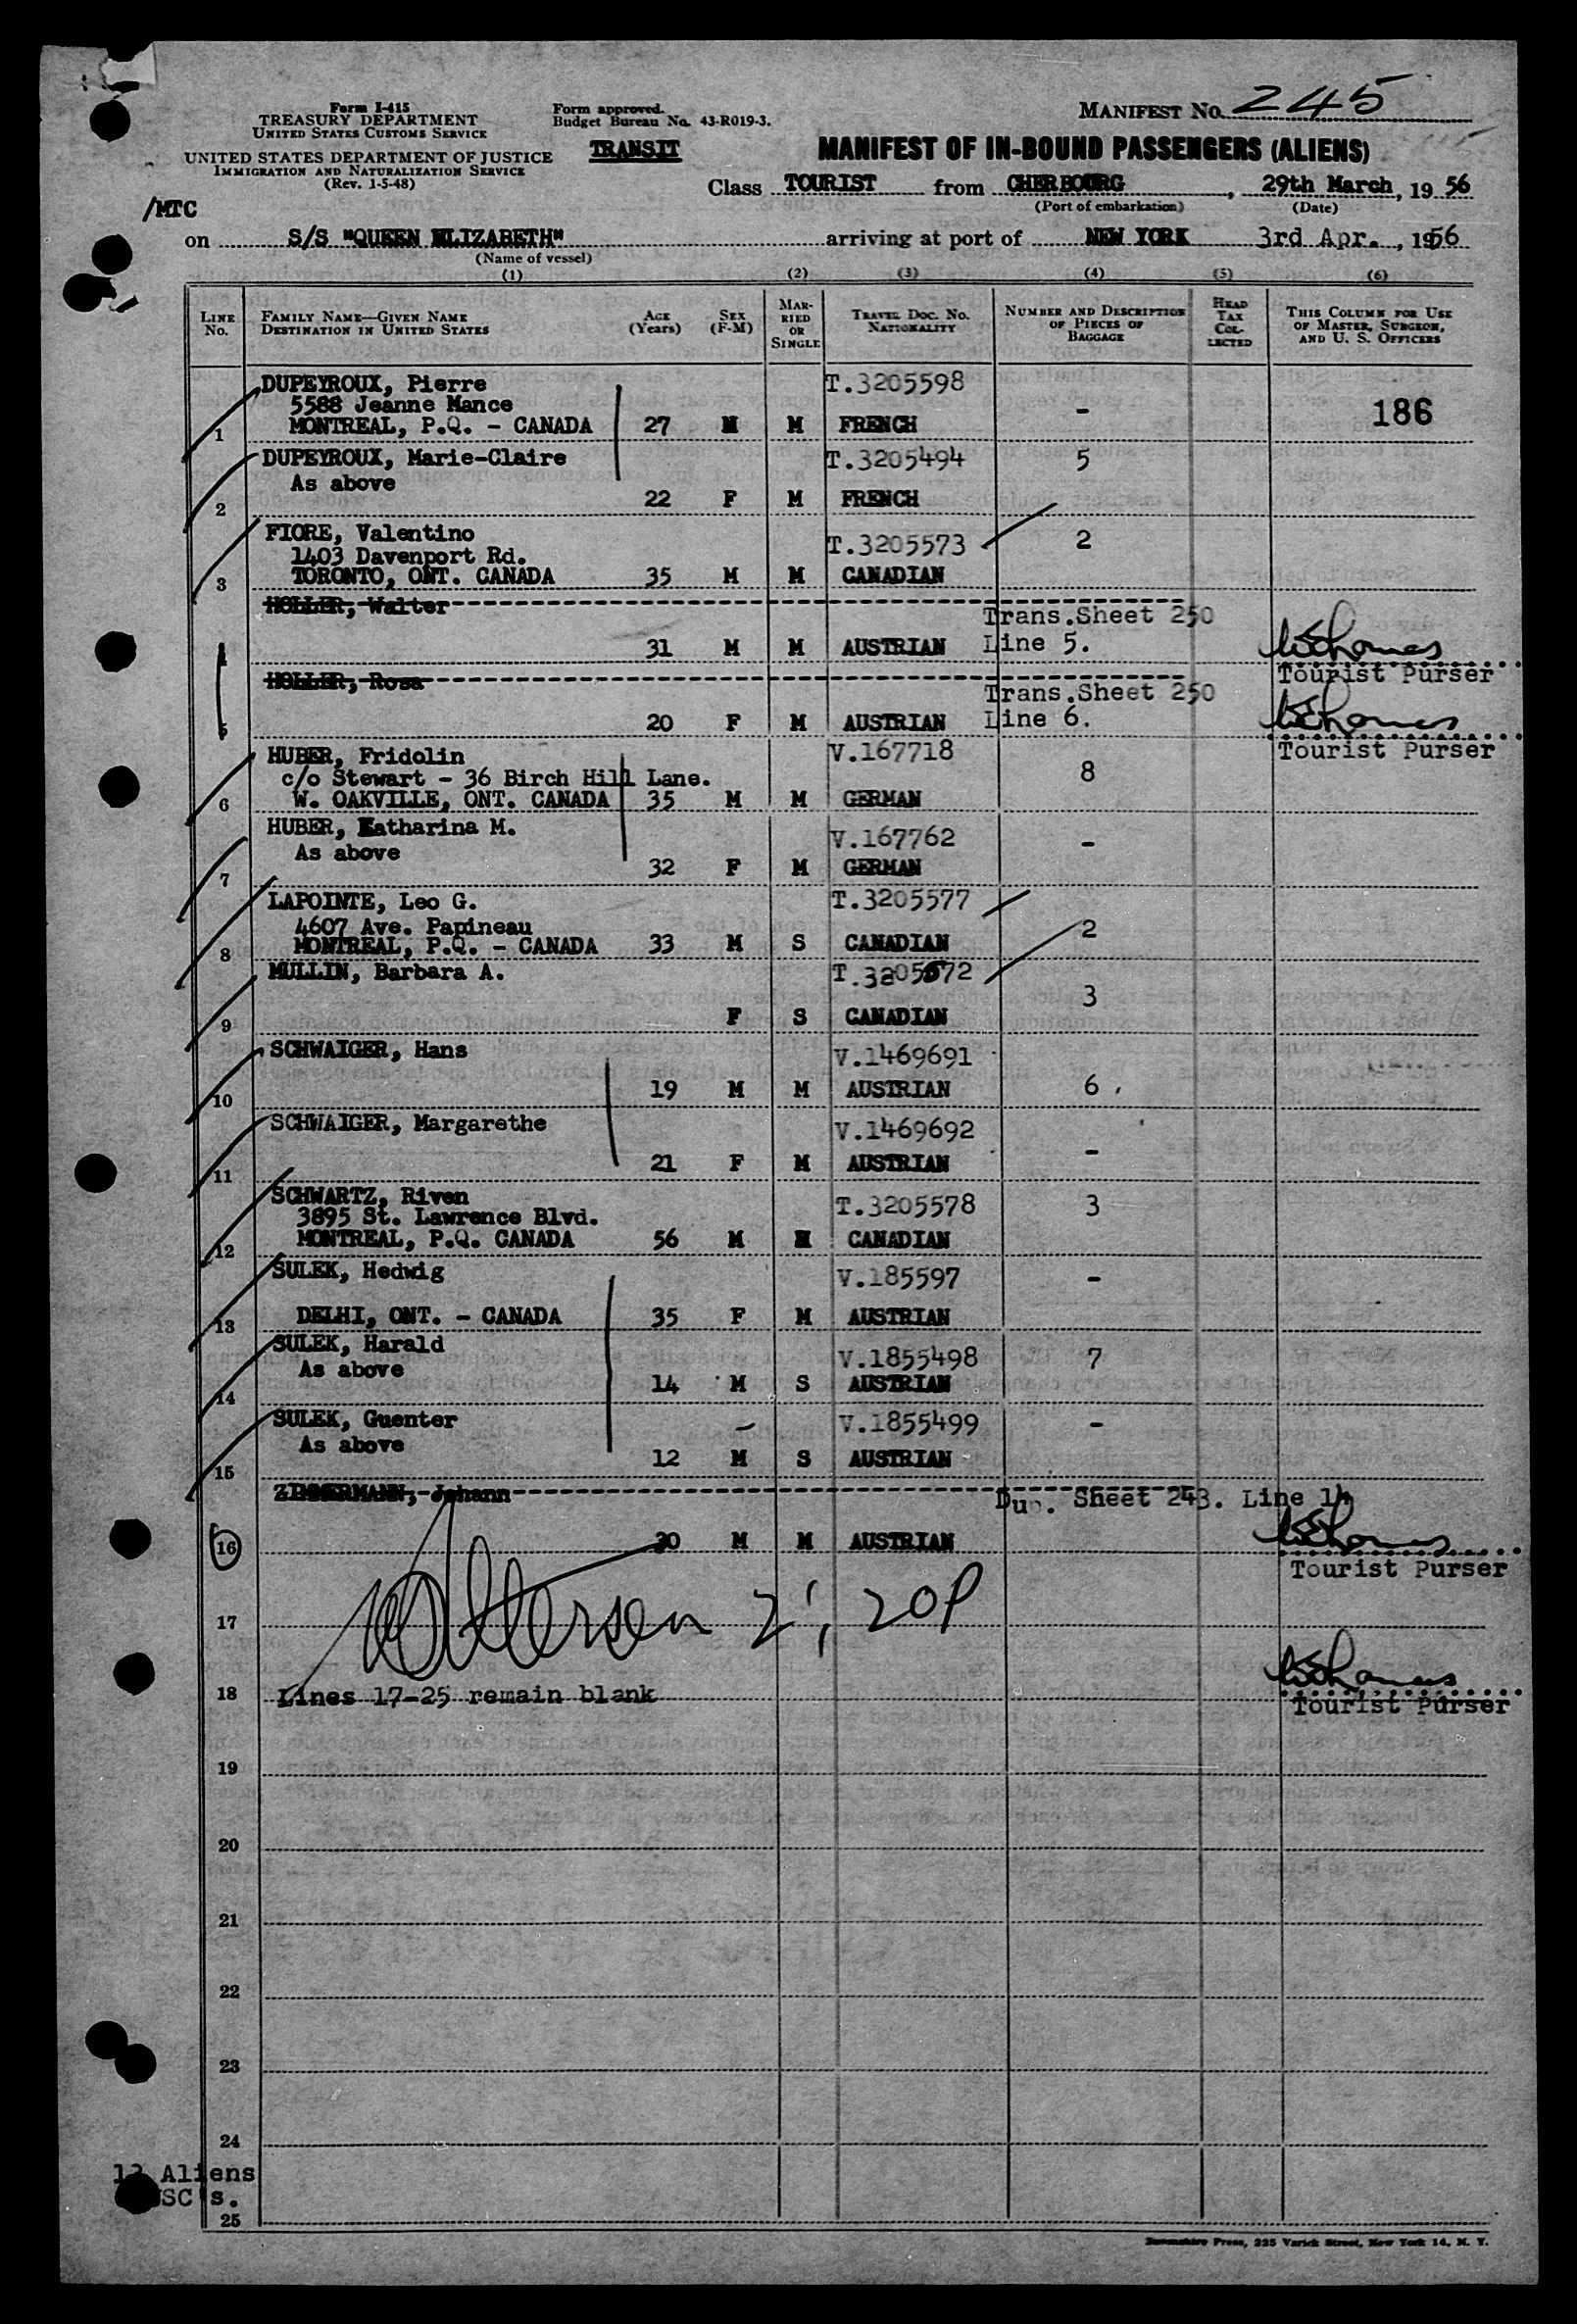 Form I-415
TREASURY DEPARTMENT
UNITED STATES CUSTOMS SERVICE
UNITED STATES DEPARTMENT OF JUSTICE
IMMIGRATION AND NATURALIZATION SERVICE
(Rev. 1-5-48)
Form approved.
Budget Bureau No. 43-R019-3.
TRANSIT
MANIFEST No. 245
MANIFEST OF IN-BOUND PASSENGERS (ALIENS)
Class TOURIST from CHERBOURG, 29th March, 1956
(Port of embarkation) (Date)
/MTC
on S/S "QUEEN ELIZABETH" arriving at port of NEW YORK 3rd Apr., 1956
(Name of vessel)
(1) (2) (3) (4) (5) (6)
LINE No. FAMILY NAME—GIVEN NAME DESTINATION IN UNITED STATES AGE (Years) SEX (F-M) MARRIED OR SINGLE TRAVEL DOC. NO. NATIONALITY NUMBER AND DESCRIPTION OF PIECES OF BAGGAGE HEAD TAX COLLECTED THIS COLUMN FOR USE OF MASTER, SURGEON, AND U. S. OFFICERS
DUPEYROUX, Pierre T.3205598
5588 Jeanne Mance - 186
1 MONTREAL, P.Q. - CANADA 27 M M FRENCH
DUPEYROUX, Marie-Claire T.3205494 5
As above
2 22 F M FRENCH
FIORE, Valentino T.3205573 2
1403 Davenport Rd.
3 TORONTO, ONT. CANADA 35 M M CANADIAN
HOLLER, Walter Trans.Sheet 250
4 31 M M AUSTRIAN Line 5.
Tourist Purser
HOLLER, Rosa Trans.Sheet 250
5 20 F M AUSTRIAN Line 6.
Tourist Purser
HUBER, Fridolin V.167718
c/o Stewart - 36 Birch Hill Lane. 8
6 W. OAKVILLE, ONT. CANADA 35 M M GERMAN
HUBER, Katharina M. V.167762 -
As above
7 32 F M GERMAN
LAPOINTE, Leo G. T.3205577
4607 Ave. Papineau 2
8 MONTREAL, P.Q. - CANADA 33 M S CANADIAN
MULLIN, Barbara A. T.3205572
3
9 F S CANADIAN
SCHWAIGER, Hans V.1469691
10 19 M M AUSTRIAN 6
SCHWAIGER, Margarethe V.1469692
11 21 F M AUSTRIAN -
SCHWARTZ, Riven T.3205578 3
3895 St. Lawrence Blvd.
12 MONTREAL, P.Q. CANADA 56 M M CANADIAN
SULEK, Hedwig V.185597 -
13 DELHI, ONT. - CANADA 35 F M AUSTRIAN
SULEK, Harald V.1855498 7
As above
14 14 M S AUSTRIAN
SULEK, Guenter V.1855499 -
As above
15 12 M S AUSTRIAN
ZIMMERMANN, Johann Dup. Sheet 243. Line 14
16 30 M M AUSTRIAN
Tourist Purser
17
18 Lines 17-25 remain blank
Tourist Purser
19
20
21
22
23
24
Aliens
25
Press, 225 Varick Street, New York 14, N. Y.